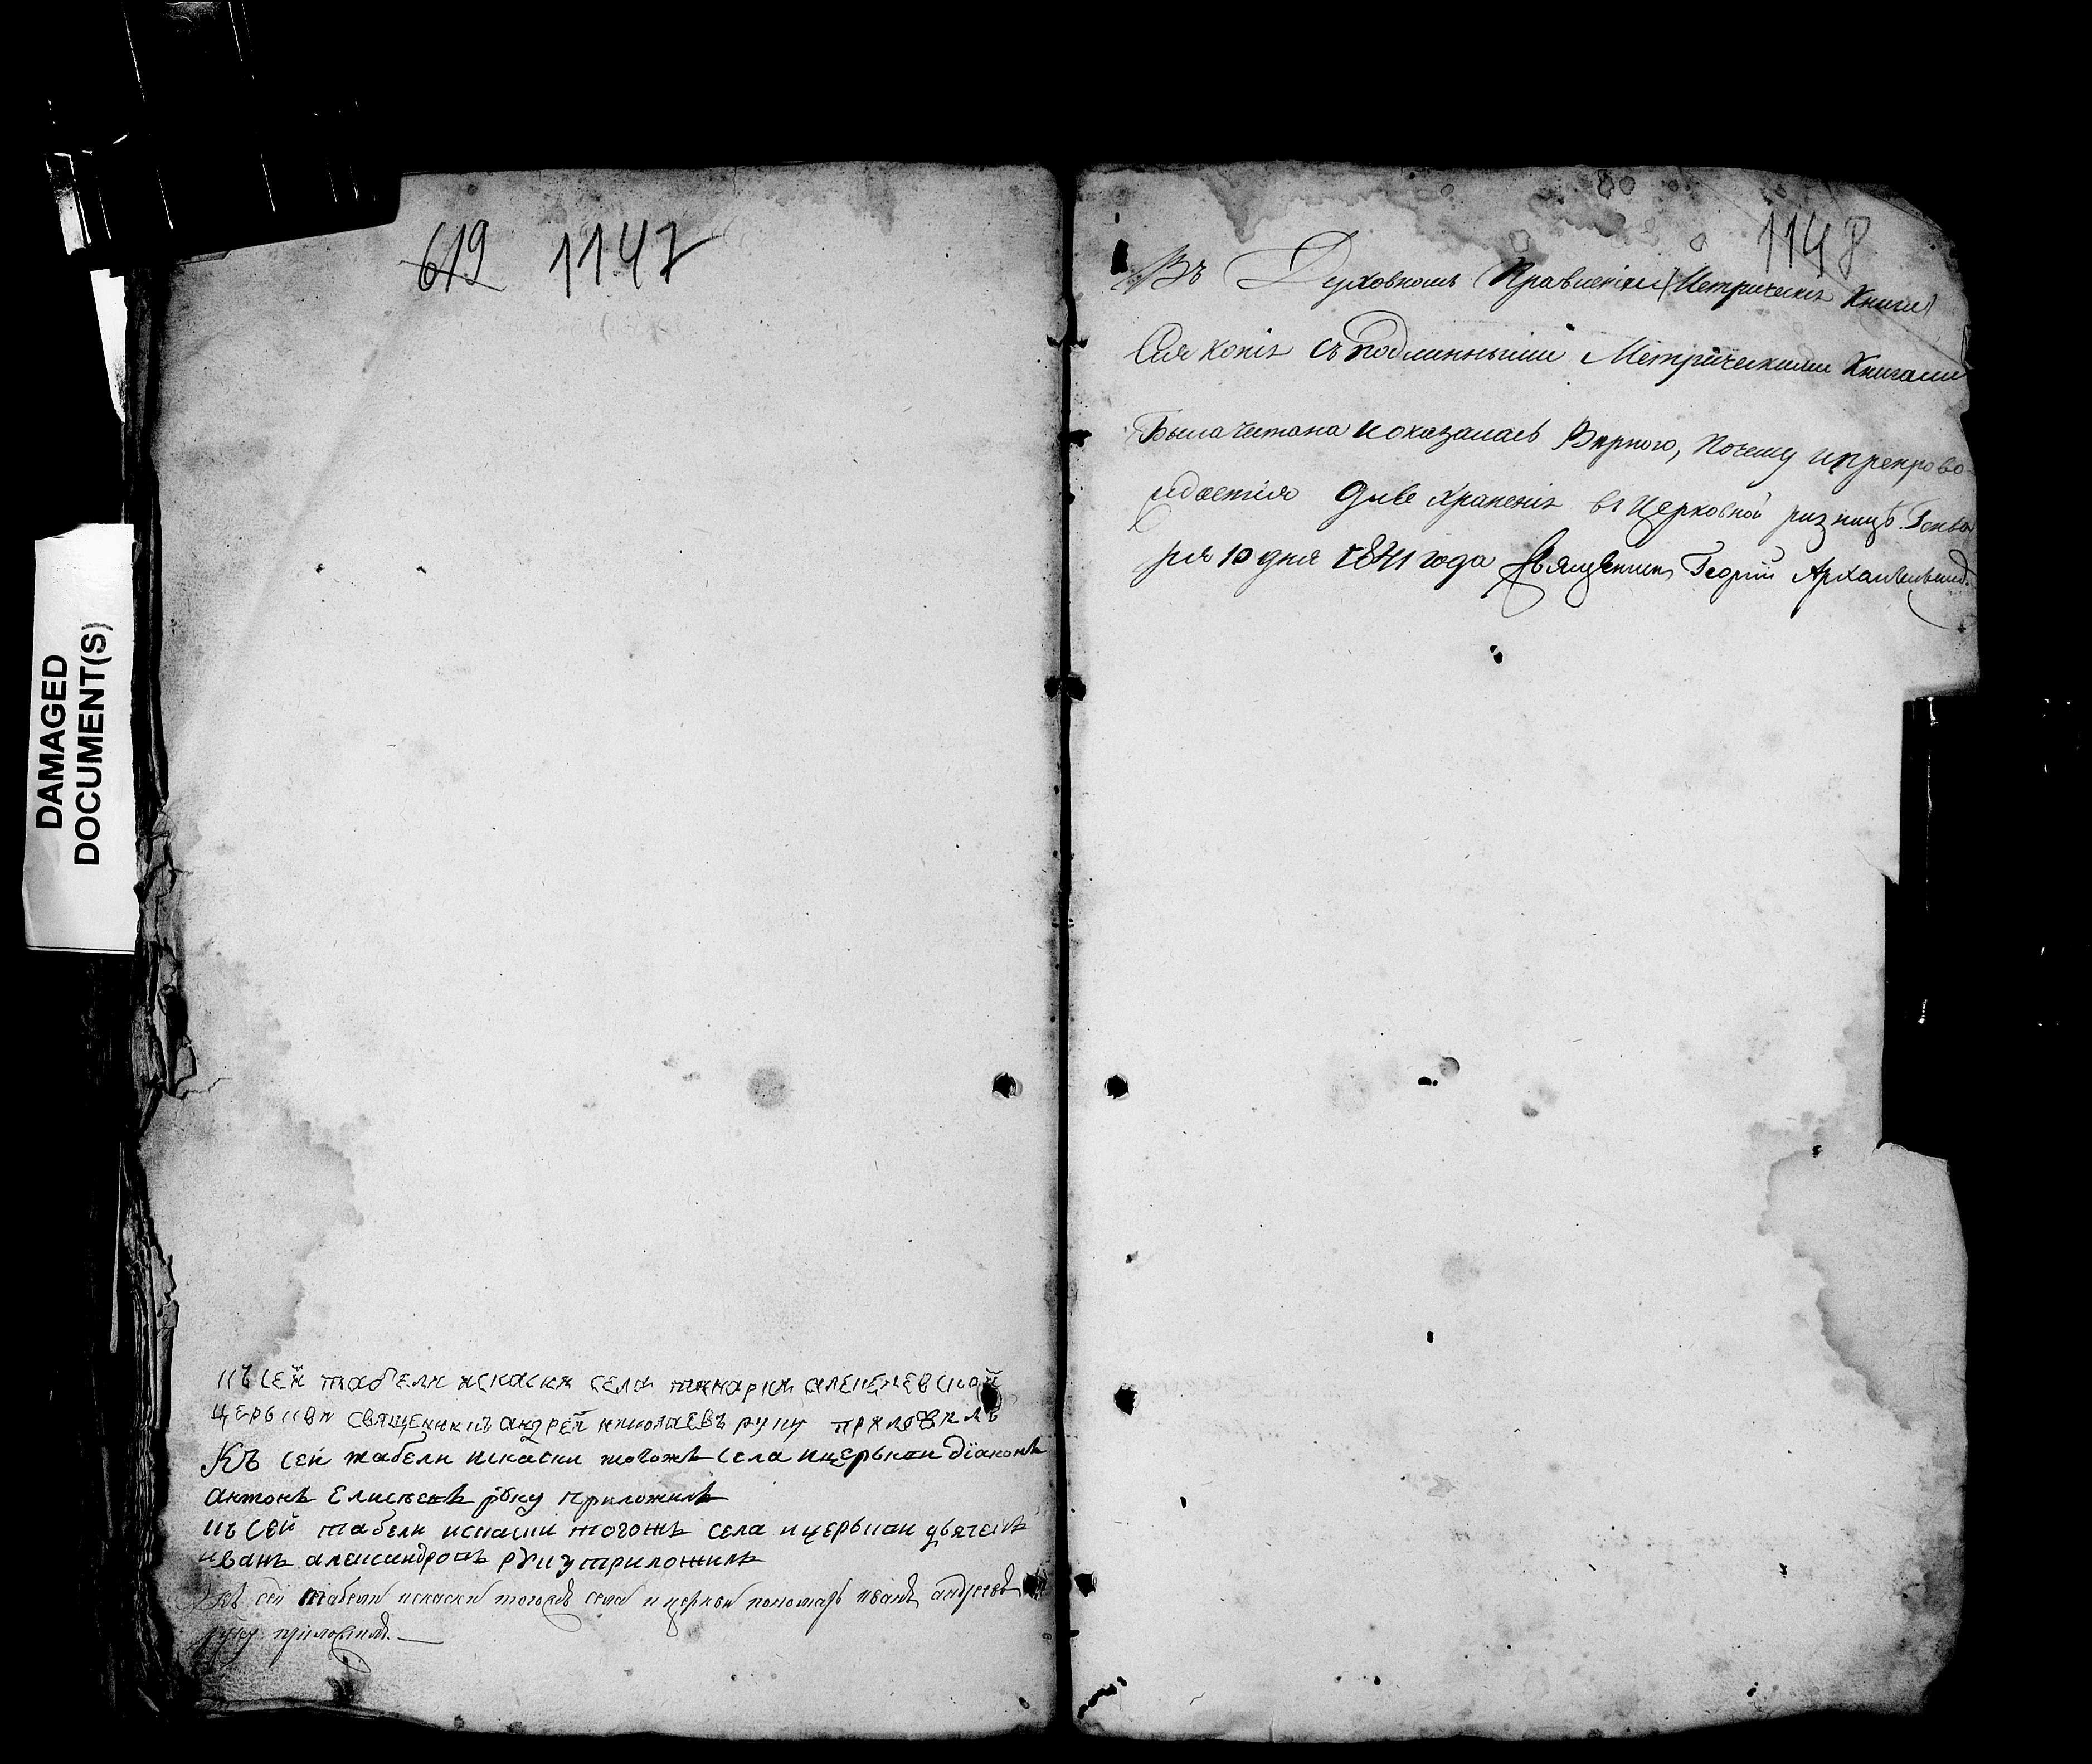 DAMAGED
DOCUMENT(S)
619 1147
къ сей табели искаски села
церькви священникъ андрей николаевъ руку приложилъ
Къ сей табели искаски тогожъ села ицерькви дїаконъ
антонъ Елисеевъ руку приложилъ
къ сей табели искаски тогожъ села ицерькви дьячекъ
иванъ александровъ руку приложилъ
къ сей табели искаски тогожъ села ицеркви пономарь иванъ андреевъ
руку приложилъ.
1148
Въ Духовномъ Правленіи (Метрическія Книги)
Сія копія съ подлинными Метрическими Книгами
Была читана иоказалась Вѣрною, почему ипрепрово
ждается для храненія въ Церковной ризницѣ. Генва
ря 10 дня 1841 года Священникъ Георгій Архангельскій.